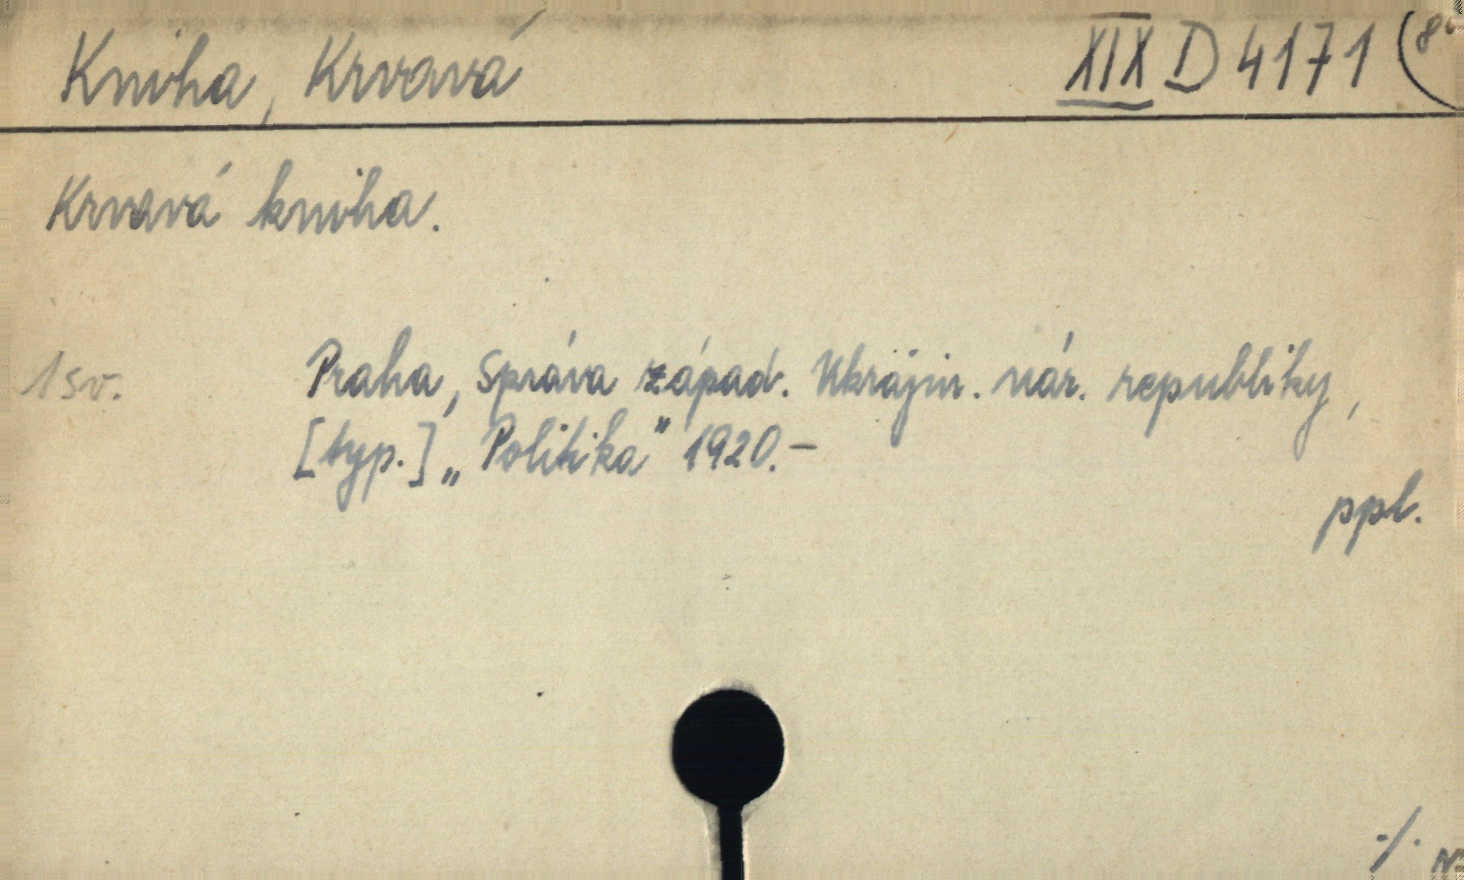 Kniha, Krvavá XIX D 4171 (8°
Krvavá kniha.
1 sv. Praha, Správa západ. Ukrajin. nár. republiky,
[typ.] „Politika" 1920.–
ppl.
./.